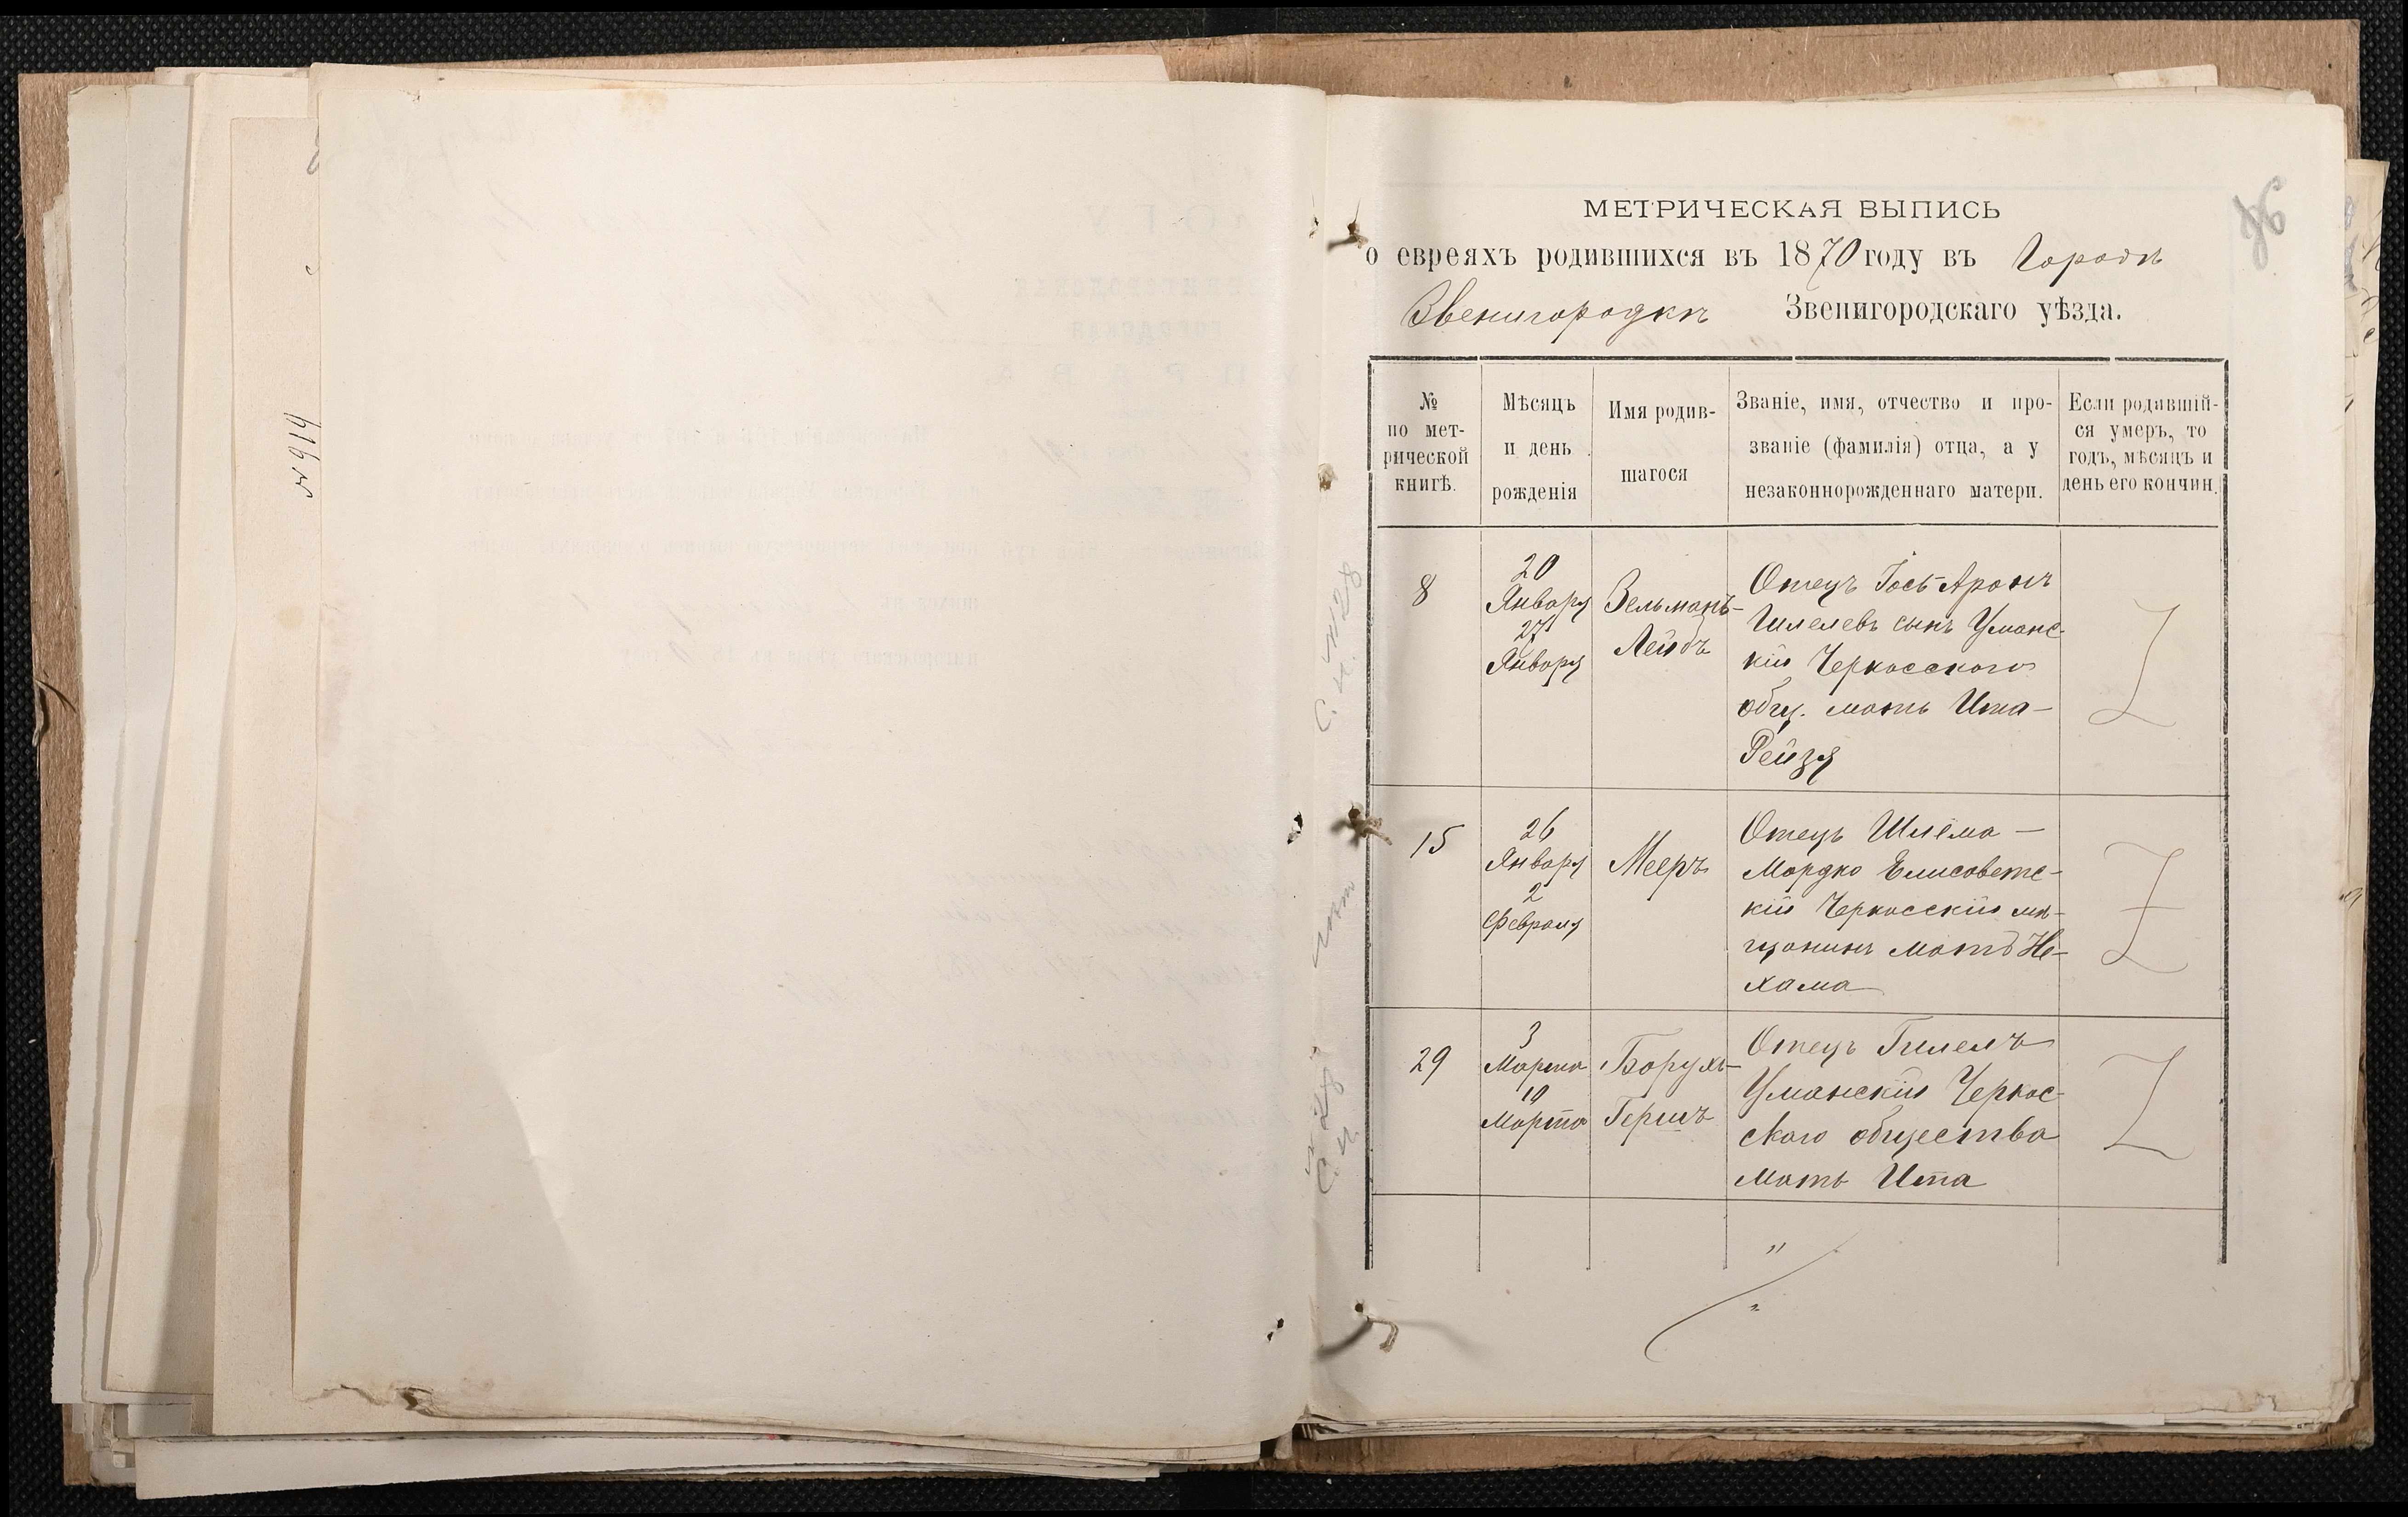 № 919
МЕТРИЧЕСКАЯ ВЫПИСЬ
о евреяхъ родившихся въ 1870 году въ Городѣ
Звенигородкѣ Звенигородскаго уѣзда.
№ по метрической книгѣ.
Мѣсяцъ и день рожденія
Имя родившагося
Званіе, имя, отчество и прозваніе (фамилія) отца, а у незаконнорожденнаго матери.
Если родившійся умеръ, то годъ, мѣсяцъ и день его кончин.
8
20
Января
27
Января
Зельманъ-
Лейбъ
Отецъ Іось-Аронъ
Гилелевъ сынъ Уманс-
кій Черкасскаго
общ. мать Ита-
Рейзя
15
26
Января
2
Февраля
Мееръ
Отецъ Шлёма-
Мордко Елисаветс-
кій Черкасскій мѣ-
щанинъ мать Не-
хама
29
3
Марта
10
Марта
Борухъ-
Гершъ
Отецъ Гилелъ
Уманскій Черкас-
скаго общества
мать Ита
С. и. № 28
нѣт
№ 28
С. и.